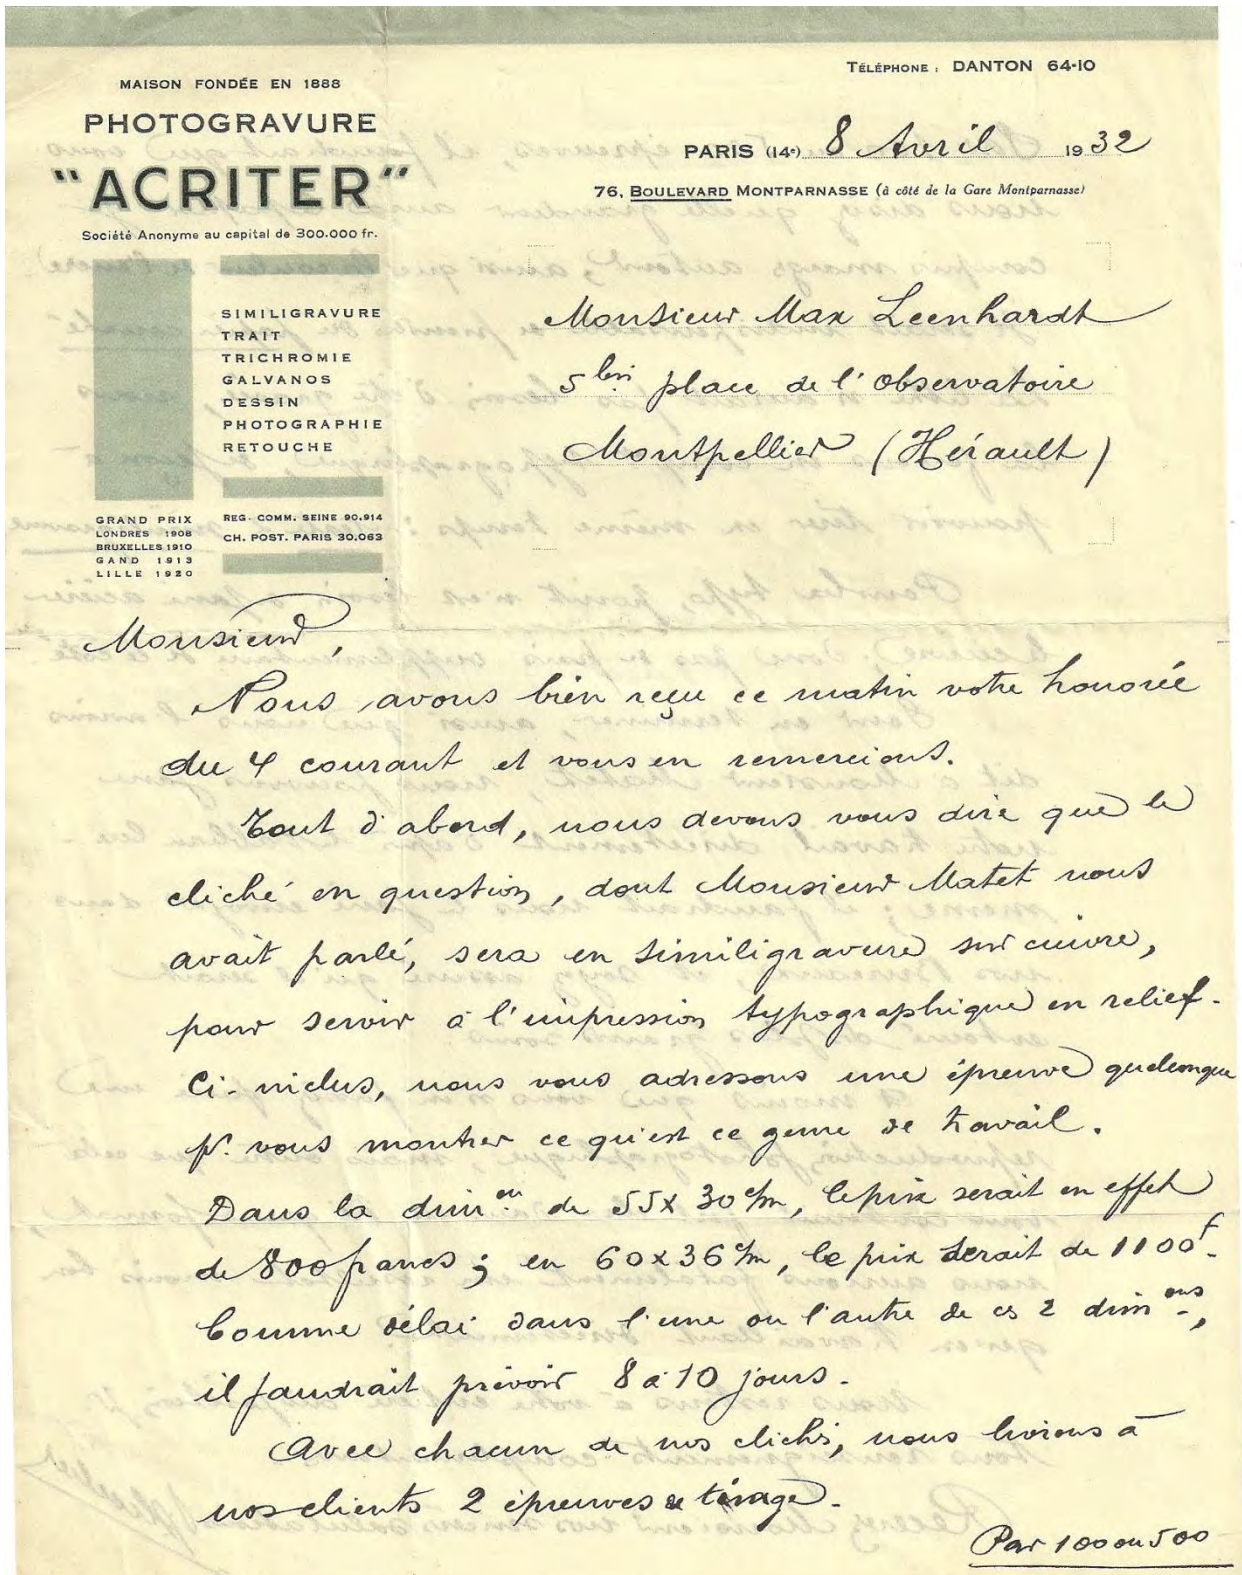 MAISON FONDÉE EN 1888
PHOTOGRAVURE
"ACRITER"
Société Anonyme au capital de 300.000 fr.
SIMILIGRAVURE
TRAIT
TRICHROMIE
GALVANOS
DESSIN
PHOTOGRAPHIE
RETOUCHE
GRAND PRIX
LONDRES 1908
BRUXELLES 1910
GAND 1913
LILLE 1920
REG. COMM. SEINE 90.914
CH. POST. PARIS 30.063
TÉLÉPHONE : DANTON 64-10
PARIS (14e) 8 Avril 1932
76, BOULEVARD MONTPARNASSE (à côté de la Gare Montparnasse)
Monsieur Max Leenhardt
5 bis place de l'Observatoire
Montpellier (Hérault)
Monsieur,
Nous avons bien reçu ce matin votre honorée
du 4 courant et vous en remercions.
Tout d'abord, nous devons vous dire que le
cliché en question, dont Monsieur Matet nous
avait parlé, sera en similigravure sur cuivre,
pour servir à l'impression typographique en relief.
Ci-inclus, nous vous adressons une épreuve quelconque
pr. vous montrer ce qu'est ce genre de travail.
Dans la dimon de 55 x 30 c/m, le prix serait en effet
de 800 francs ; en 60 x 36 c/m, le prix serait de 1100f.
Comme délai dans l'une ou l'autre de ces 2 dimons,
il faudrait prévoir 8 à 10 jours.
Avec chacun de nos clichés, nous livrons à
nos clients 2 épreuves de tirage.
Par 100 ou 500